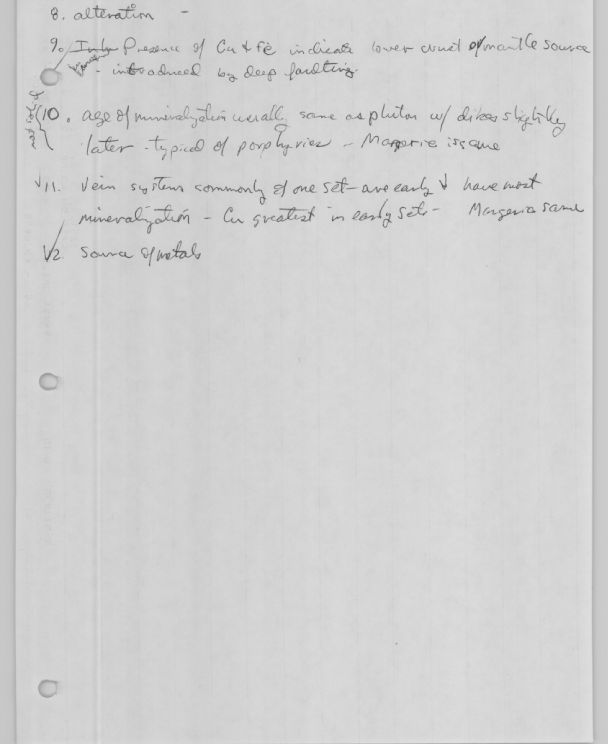 8. alteration -
9. Presence of Cu & Fe indicate lower crust or mantle source
- introduced by deep faulting.
10. age of mineralization usually same as pluton w/ dikes slightly
later - typical of porphyries - Margerie is same
11. Vein system commonly of one set - are early & have most
mineralization - Cu greatest in early sets - Margerie same
12. Source of metals